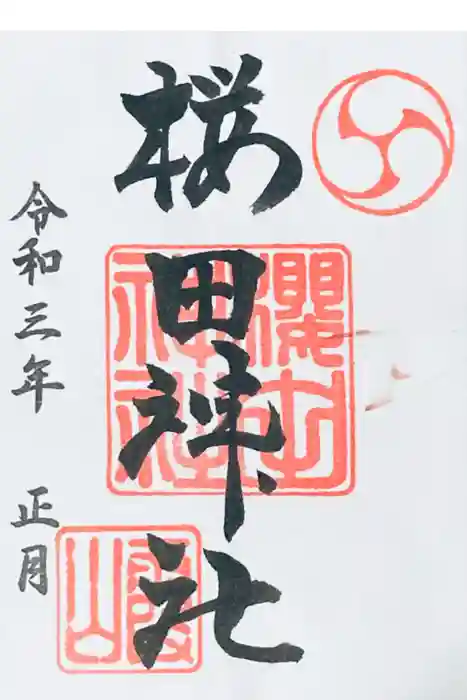 桜田神社
令和三年 正月